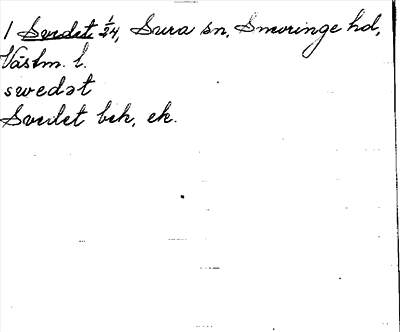 1 Svedet 1/24, Sura sn, Snevringe hd,
Västm. l.
swedət
Svedet bek, ek.